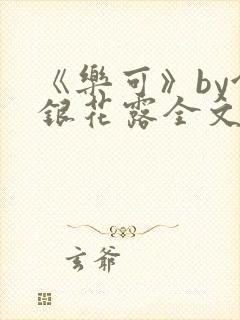 《樂可》by
銀花露全文
玄爺